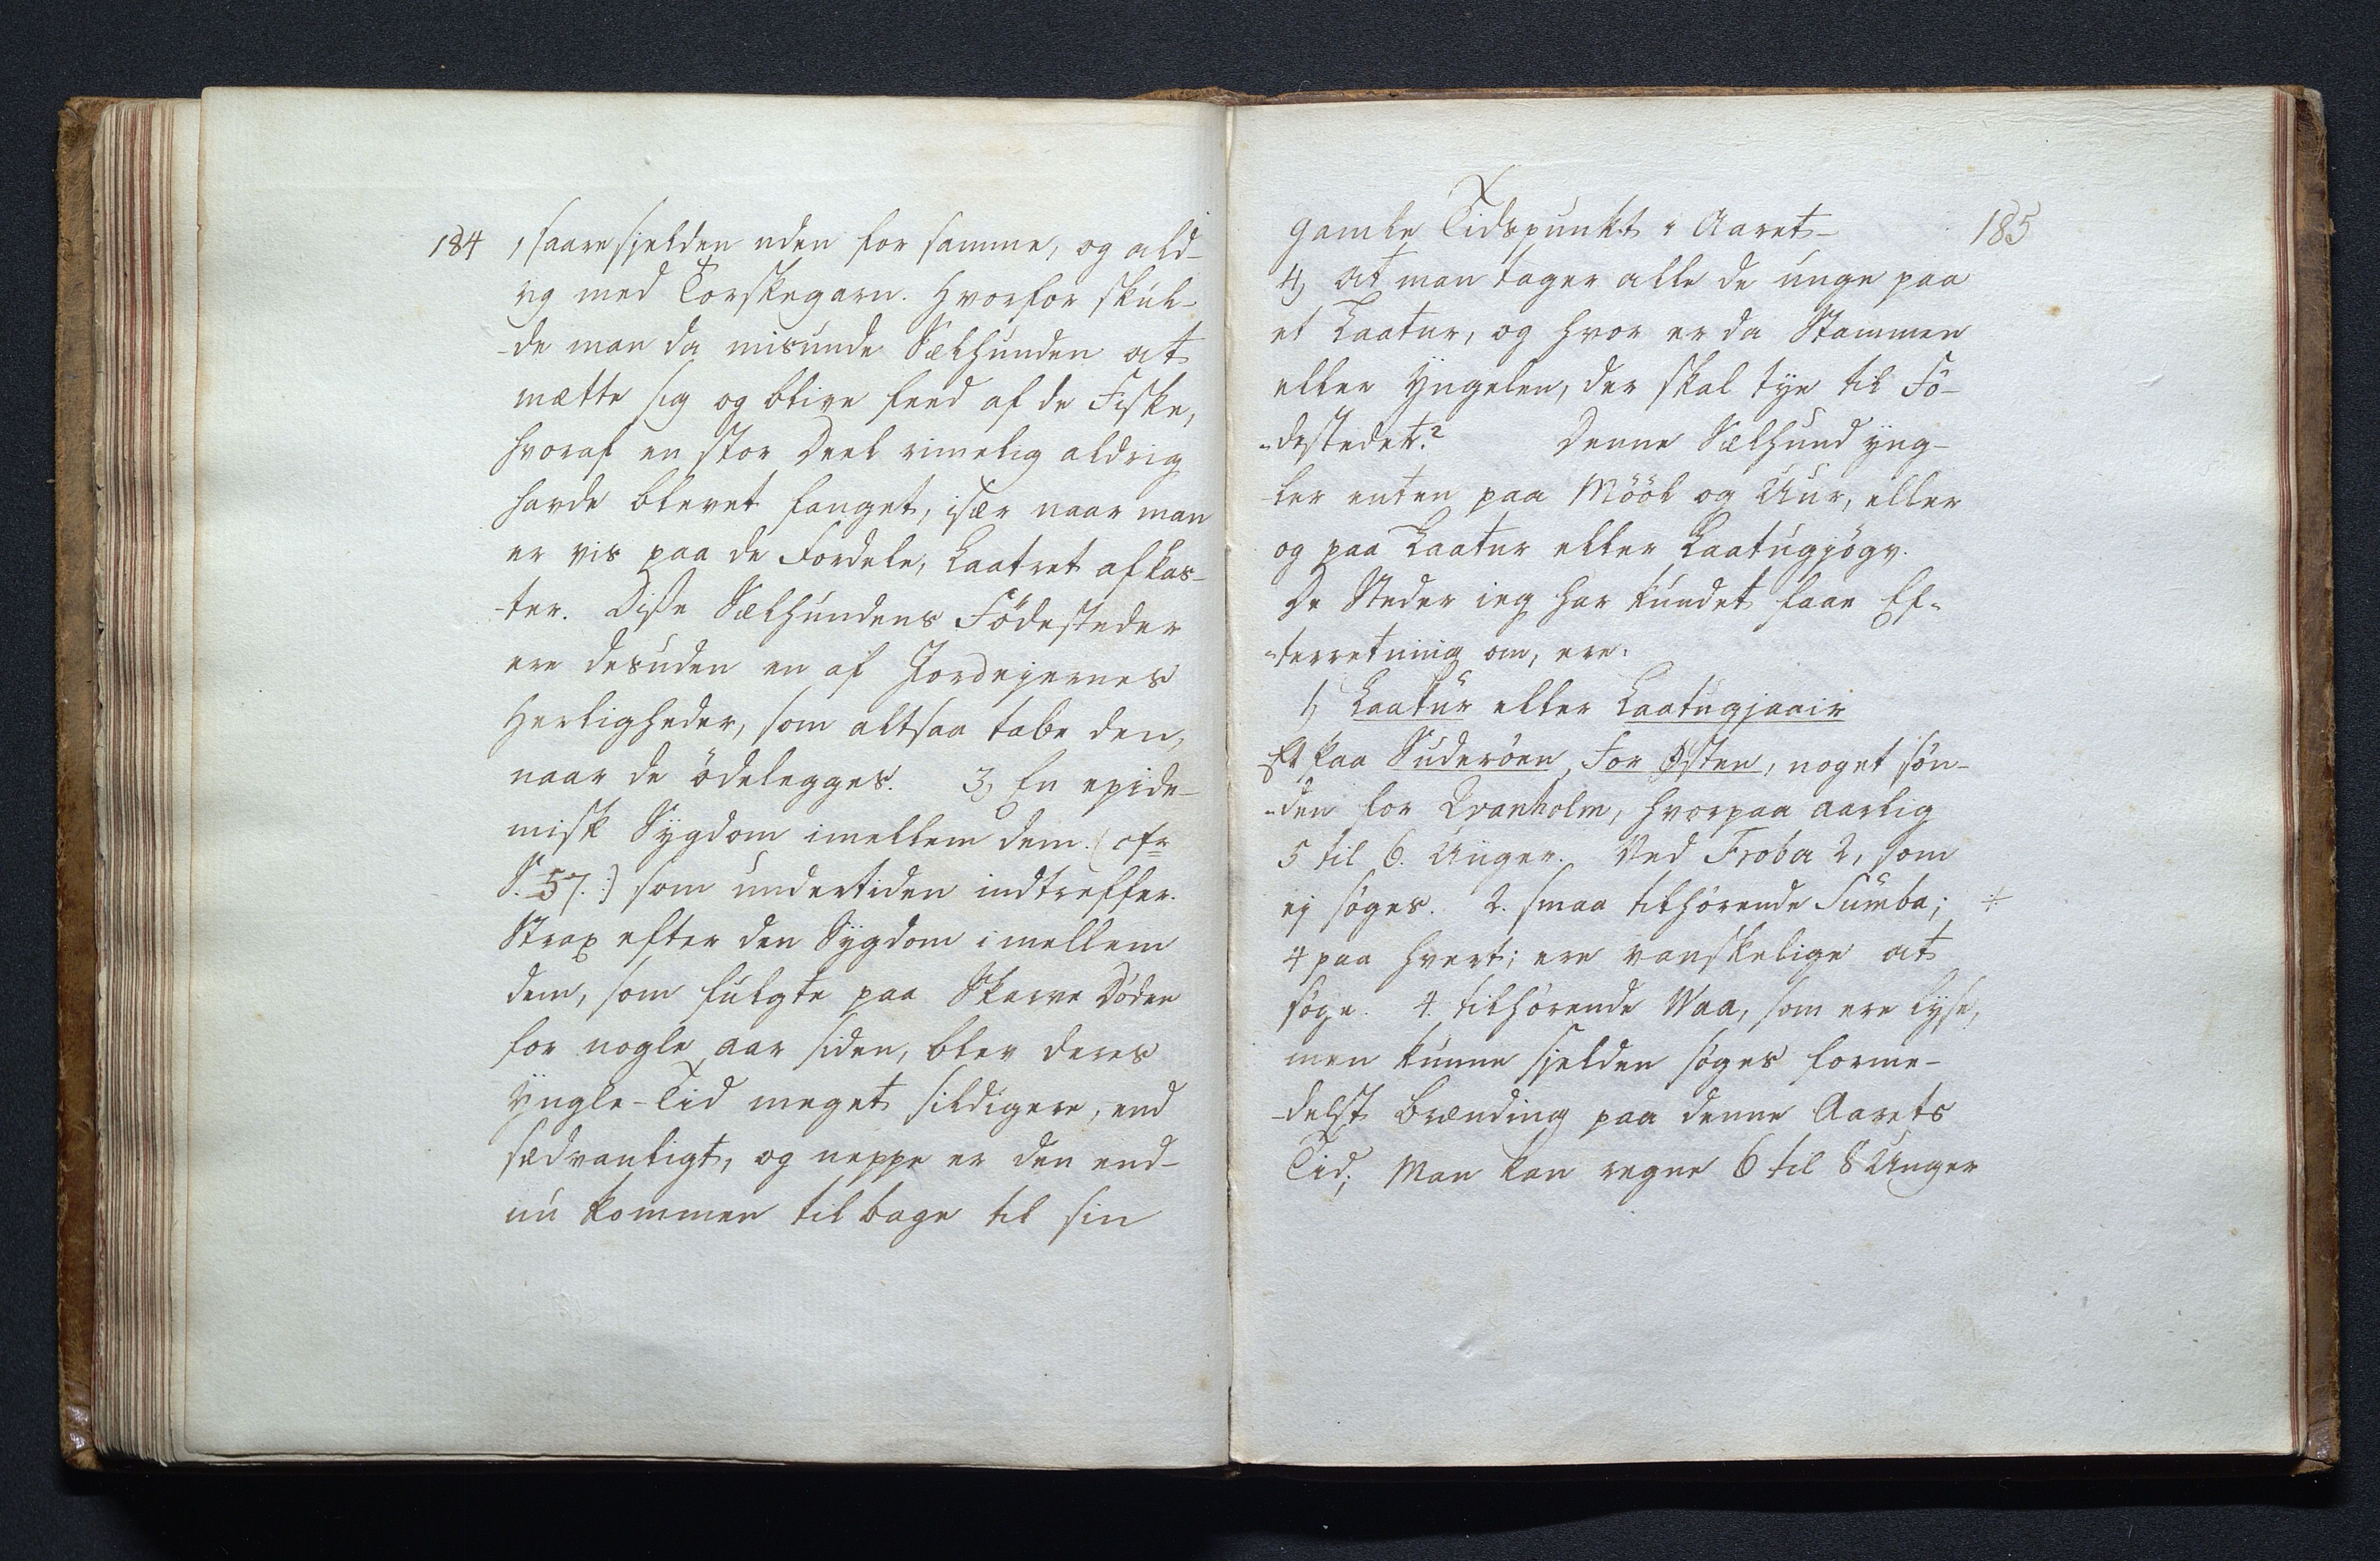 184
, saare sjelden uden for samme, og ald-
rig med Torskegarn. Hvorfor skul-
-de man da misunde Sælhunden at
mætte sig og blive feed af de Fiske,
hvoraf en stor Deel rimelig aldrig
havde blevet fanget, især naar man
er vis paa de Fordele, Laatret afkas-
-ter. Disse Sælhundens Födesteder
ere desuden en af Jordejernes
Herligheder, som altsaa tabe den,
naar de ödelegges. 3, En epide-
misk Sÿgdom imellem dem. (cfr
S. 57.:) som undertiden indtreffer.
Strax efter den Sÿgdom imellem
dem, som fulgte paa Skarve Döden
for nogle aar siden, blev deres
Ÿngle-Tid meget sildigere, end
sædvanligt, og neppe er den end-
nu kommen tilbage til sin
185
gamle Tidspunkt i Aaret-
4, At man tager alle de unge paa
et Laatur, og hvor er da Stammen
eller Ÿngelen, der skal tÿe til Fö-
-destedet? Denne Sælhund ÿng-
-ler enten paa Mööl og Uur, eller
og paa Laatur eller Laatugjögv.
De Steder ieg har kundet faae Ef-
-terretning om, ere:
1, Laatur eller Laatugjaair
Et paa Suderöen, For Østen, noget sön-
-den for Qvanholm, hvorpaa aarlig
5 til 6. Unger. Ved Froba 2, som
ej söges. 2. smaa tilhörende Sumba;
4 paa hvert; ere vanskelige at
söge. 4. tilhörende Waa, som ere lÿse,
men kunne sjelden söges forme-
-delst Brænding paa denne Aarets
Tid; Man kan regne 6 til 8 Unger